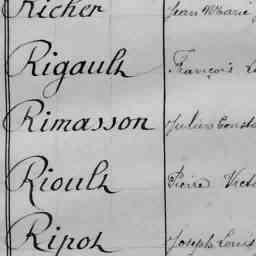 Richer Jean Marie
Rigault François
Rimasson Julien
Rioult Pierre
Ripot Joseph Louis